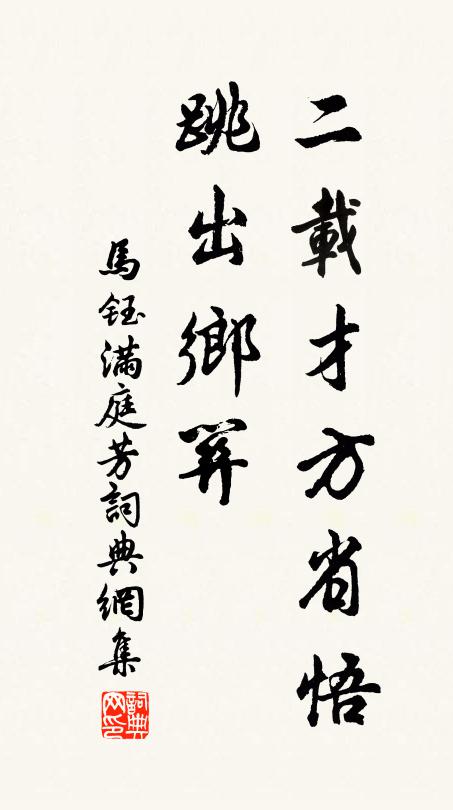 二載才方省悟
跳出鄉關
馬鈺滿庭芳詞典網集
詞典网印